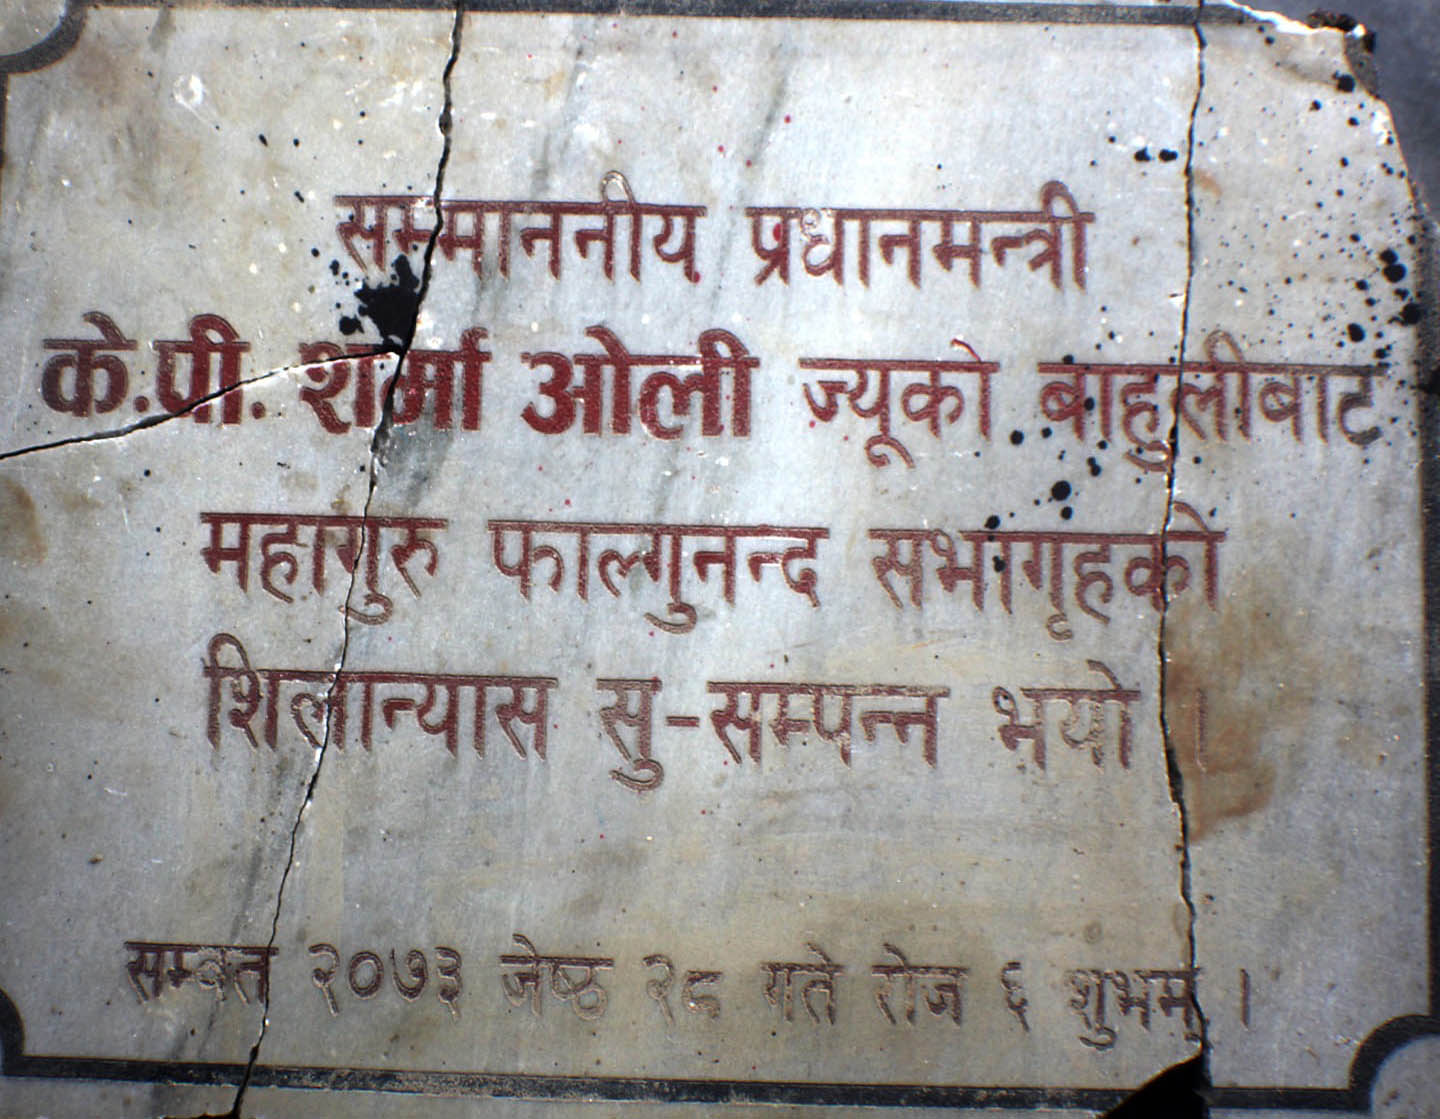 सम्माननीय प्रधानमन्त्री
के.पी. शर्मा ओली ज्यूको बाहुलीबाट
महागुरु फाल्गुनन्द सभागृहको
शिलान्यास सु-सम्पन्न भयो ।
सम्वत २०७३ जेष्ठ २८ गते रोज ६ शुभम् ।